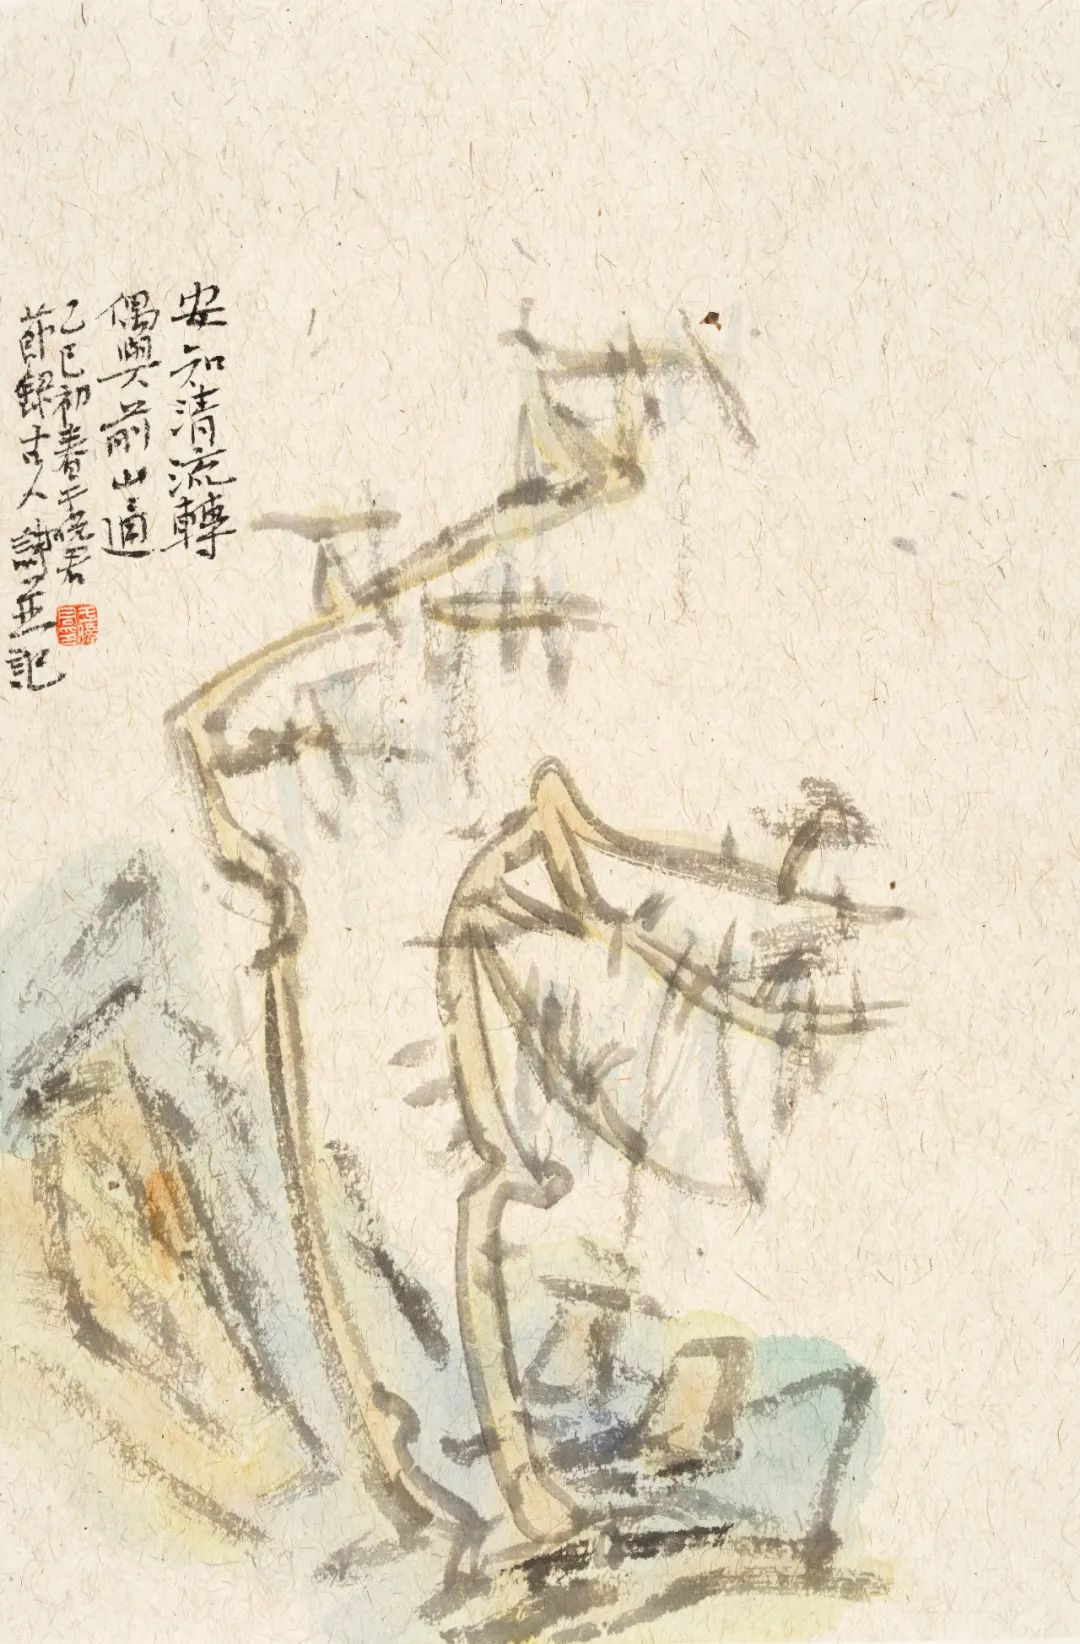 安知清流轉
偶與前山通
乙巳初春于曉君
節録古人詩並記